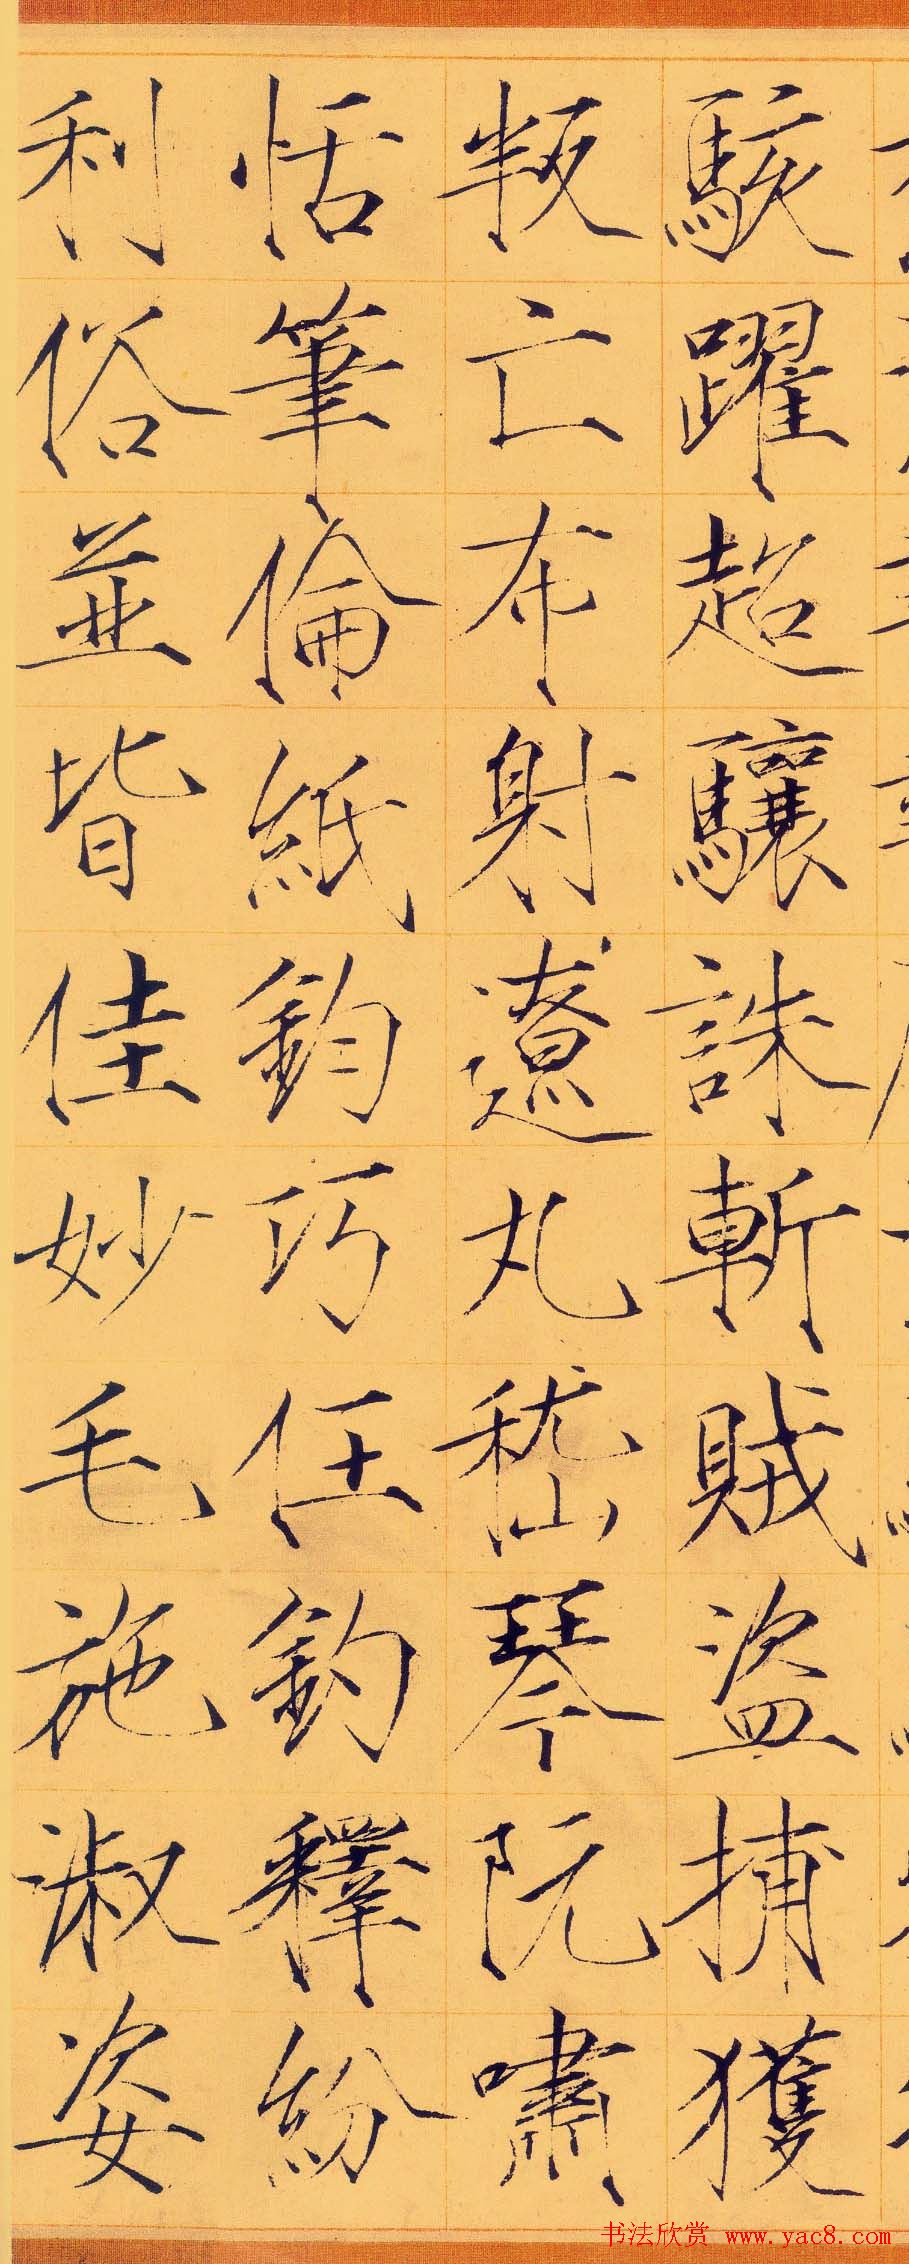 駭躍超驤誅斬賊盜捕獲
叛亡布射遼丸嵇琴阮嘯
恬筆倫紙鈞巧任釣釋紛
利俗並皆佳妙毛施淑姿
书法欣赏 www.yac8.com